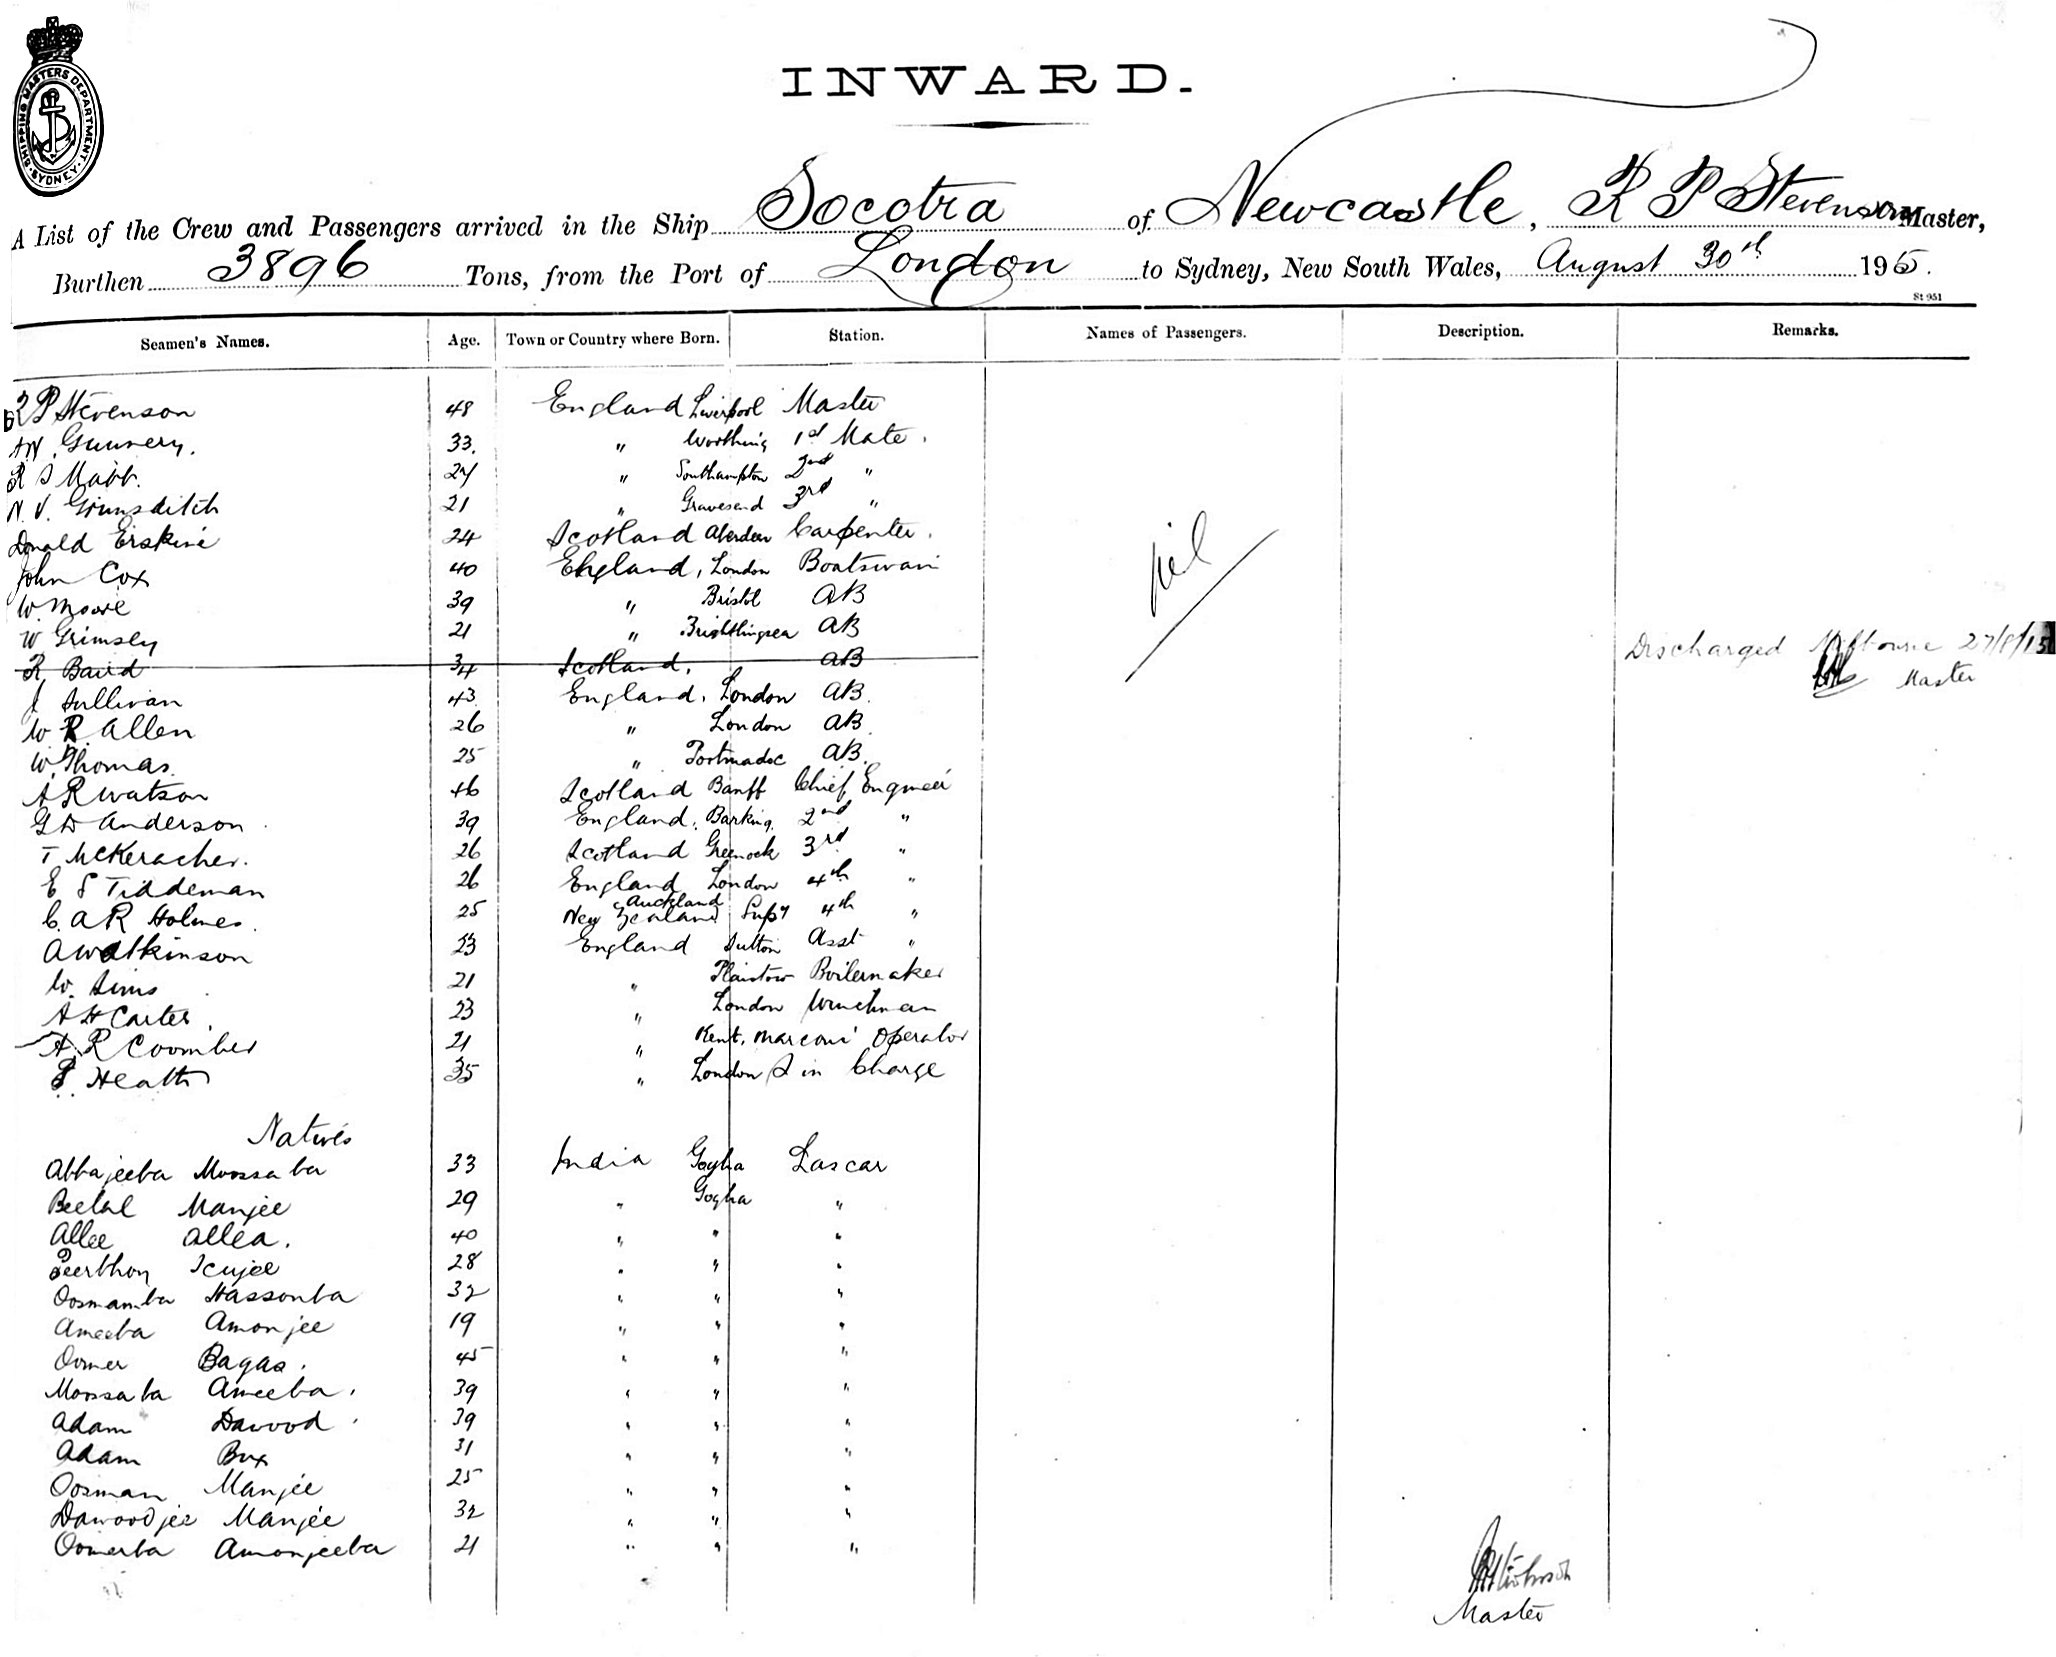 SHIPPING MASTERS DEPARTMENT. SYDNEY
INWARD.
A List of the Crew and Passengers arrived in the Ship Socotra of Newcastle, R P Stevenson Master,
Burthen 3896 Tons, from the Port of London to Sydney, New South Wales, August 30th 195.
St 951
Seamen's Names. Age. Town or Country where Born. Station. Names of Passengers. Description. Remarks.
R P Stevenson 48 England Liverpool Master
Gunnery. 33. " Worthing 1st Mate.
R S Mabb. 27 " Southampton 2nd "
N. V. Grimsditch 21 " Gravesend 3rd "
Donald Erskine 24 Scotland Aberdeen Carpenter.
John Cox 40 England, London Boatswain
nil
W. Moore 39 " Bristol AB
W Grimsey 21 " Brightlingsea AB
R. Baird 34 Scotland. AB Discharged Melbourne 27/8/15
Master
J Sullivan 43 England. London AB.
W R Allen 26 " London AB.
W. Thomas. 25 " Portmadoc AB.
A R Watson 46 Scotland Banff Chief Engineer
G D Anderson 39 England. Barking. 2nd "
T McKeracher. 26 Scotland Greenock 3rd "
E S Tiddeman 26 England London 4th "
C. A R Holmes. 25 New Zealand Auckland Supy 4th "
A Watkinson 23 England Sutton Asst "
W. Sims 21 " Plaistow Boilermaker
A H Carter. 23 " London Winchman
A. R Coomber 21 " Kent. Marconi Operator
Heath 35 " London S in Charge
Natives
Abbajeeba Moossaba 33 India Gogha Lascar
Beelal Manjee 29 " Gogha "
Allee Allea. 40 " " "
Peerbhoy 28 " " "
Oosmanba Hassonba 32 " " "
Ameeba Amonjee 19 " " "
Oomer Bagas. 45 " " "
Moossaba Ameeba. 39 " " "
Adam Dawood 39 " " "
Adam Bux 31 " " "
Oosman Manjee 25 " " "
Dawoodjee Manjee 32 " " "
Oomerba Amonjeeba 21 " " "
Master